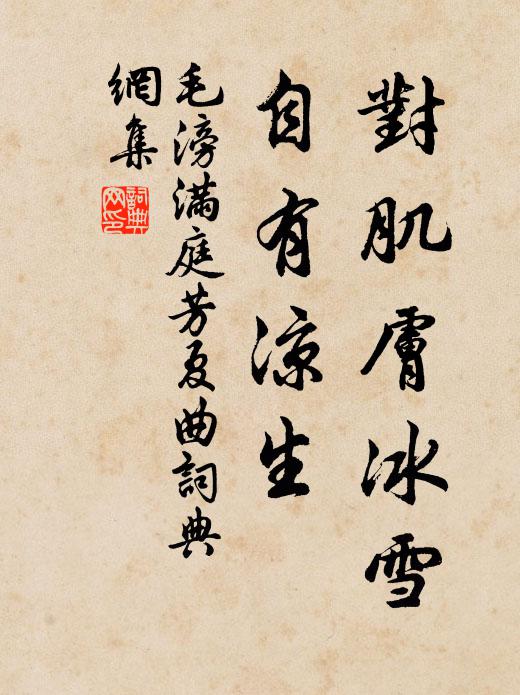 對肌膚冰雪
自有涼生
毛滂滿庭芳夏曲詞典
網集
詞典
网印